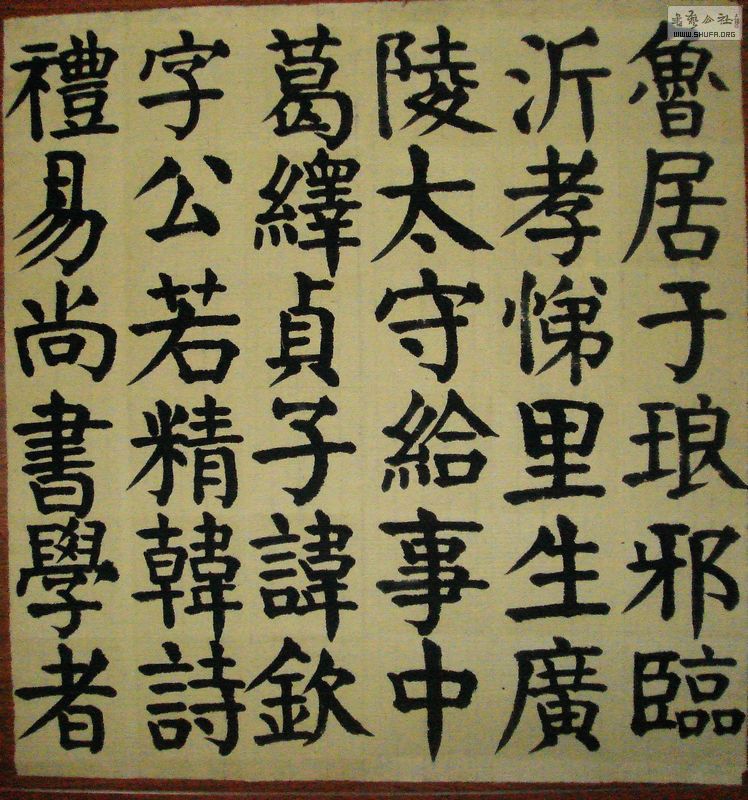 魯居于琅邪臨
沂孝悌里生廣
陵太守給事中
葛繹貞子諱欽
字公若精韓詩
禮易尚書學者
WWW.SHUFA.ORG